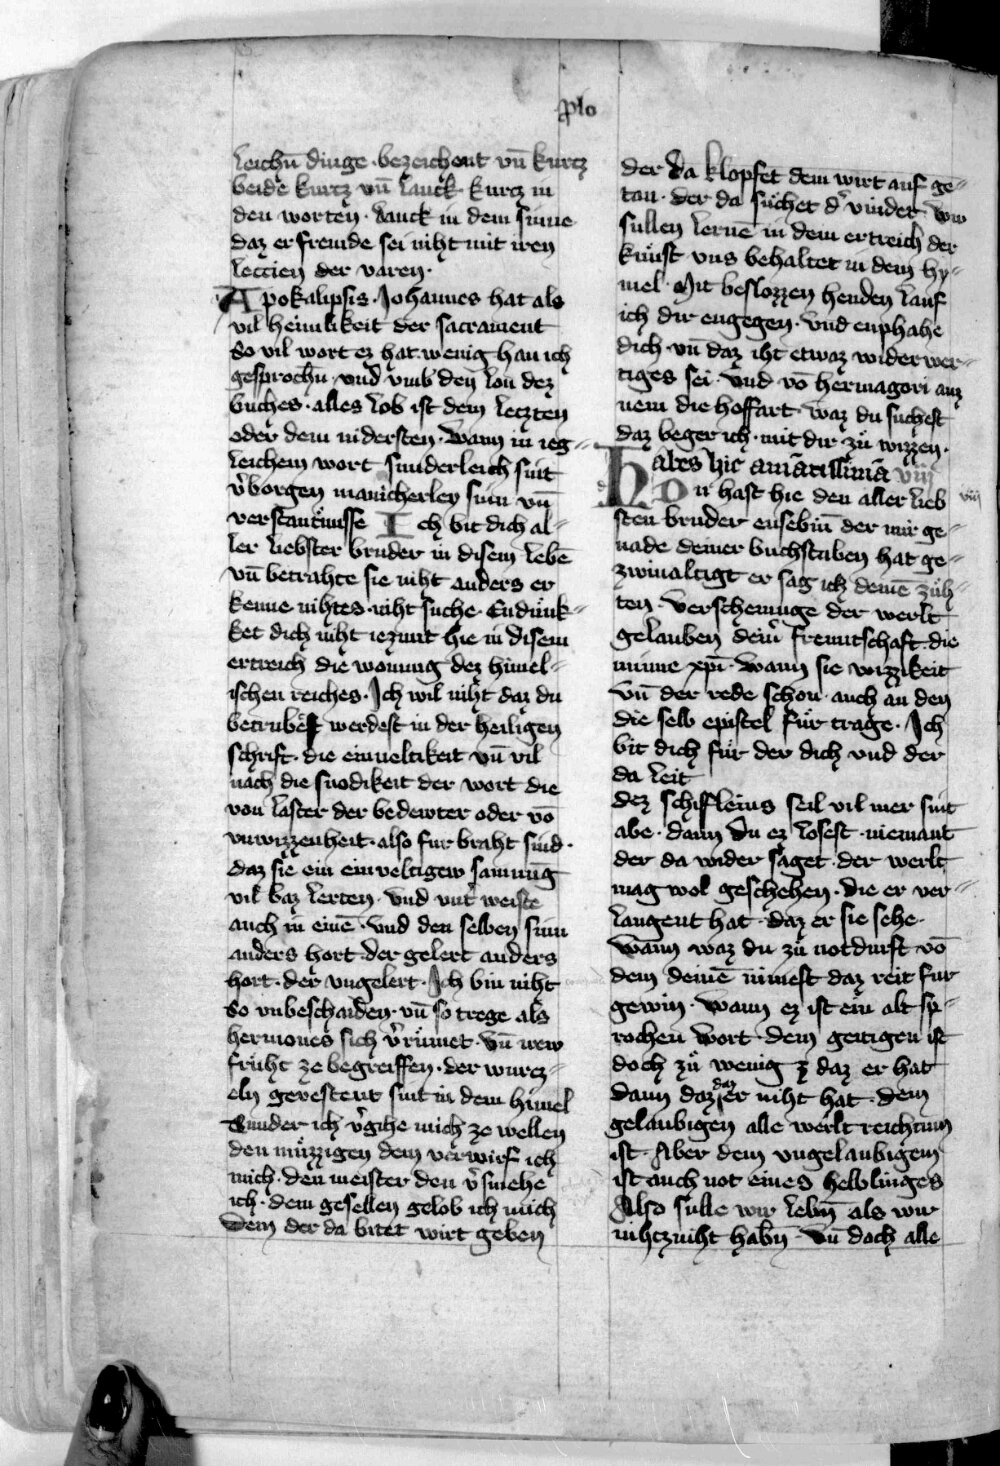 plo
leichū dinge · bezeichent vn̄ kurcz
beide kurcz vn̄ lanck · kurcz in
den worten · lanck in dem sinne
daz er fremde sei niht mit iren
lectien der varen ·
Apokalipsis · Johannes hat als
vil heimlikeit der sacrament
So vil wort ez hat · wenig han ich
gesprochn̄ · vnd vmb den lon dez
buches · alles lob ist dem letzten
oder dem nidersten · Wann in ieg⸗
leichem wort sunderleich sint
v̓borgen manicherley sinn vn̄
verstantnüsse Ich bit dich al⸗
ler liebster bruder in disem lebē
vn̄ betrahte sie niht anders er
kenne nihtes · niht suche · Endünk⸗
ket dich niht iezunt hie in disem
ertreich die wonung dez himel⸗
ischen reiches · Ich wil niht daz du
betrubet werdest in der heiligen
schrift · die einueltikeit vn̄ vil
nach die snodikeit der wort die
von laster der bedewter oder vō
vnwizzenheit · also fur braht sind ·
daz sie ein einveltigew samnūg
vil baz lerten · vnd vnt̓ weiste
auch in einē · vnd den selben sinn
anders hort · der gelert anders
hort · der vngelert · Ich bin niht
So vnbeschaiden · vn̄ so trege als
hermones sich v̓rümet · vn̄ new
früht ze begreiffen · der wurcz⸗
eln gevestent sint in dem himel
Sunder ich v̓gihe mich ze wellen
den müzzigen dem verwirf ich
mich · den meister den v̓smehe
ich · dem gesellen gelob ich mich
Dem der da bitet wirt geben
der da klopfet dem wirt auf ge⸗
tan · der da suchet d̓ vindet · wir
sullen lernē in dem ertreich der
kunst vns behaltet in dem hy⸗
mel · Mit beslozzen henden lauf
ich dir engegen · vnd enphahe
dich · vn̄ daz iht etwaz widerwer⸗
tiges sei · vnd vō hermagori auz
nem die hoffart · waz du suchest
daz beger ich · mit dir zu wizzen ·
Habes hic amātissimā viii
Du hast hie den aller lieb viii
sten bruder eusebiū der mir ge⸗
nade deiner buchstaben hat ge⸗
zwinaltigt er sag ich deinē züh⸗
ten · verscheinunge der werlt
gelauben dein̓ freuntschaft · die
minne xpī · wann sie wizzikeit
vn̄ der rede schon · auch an den
die selb epistel für trage · Ich
bit dich für der dich vnd der
da leit
dez schiffleins seil vil mer snit
abe · dann du ez losest · niemant
der da wider saget · der werlt
mag wol geschehen · die er ver⸗
langent hat · daz er sie sehe ·
Wann waz du zu notdurft vō
dem deinē nimest daz reit für
gewin · wann ez ist ein alt sp⸗
rochen wort · dem geitigen ist
doch zü wenig z daz er hat
dann daz daz er niht hat · dem
gelaubigen alle werlt reichtum
ist · Aber dem vngelaubigem
ist auch not eines helblinges
Also sulle wir lebn̄ als wir
nihczniht habn̄ · vn̄ doch alle